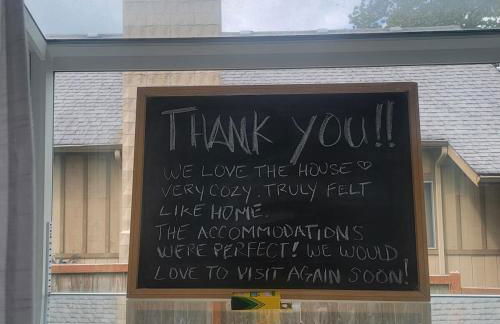 THANK YOU!!
WE LOVE THE HOUSE ♡
VERY COZY. TRULY FELT
LIKE HOME.
THE ACCOMMODATIONS
WERE PERFECT! WE WOULD
LOVE TO VISIT AGAIN SOON!